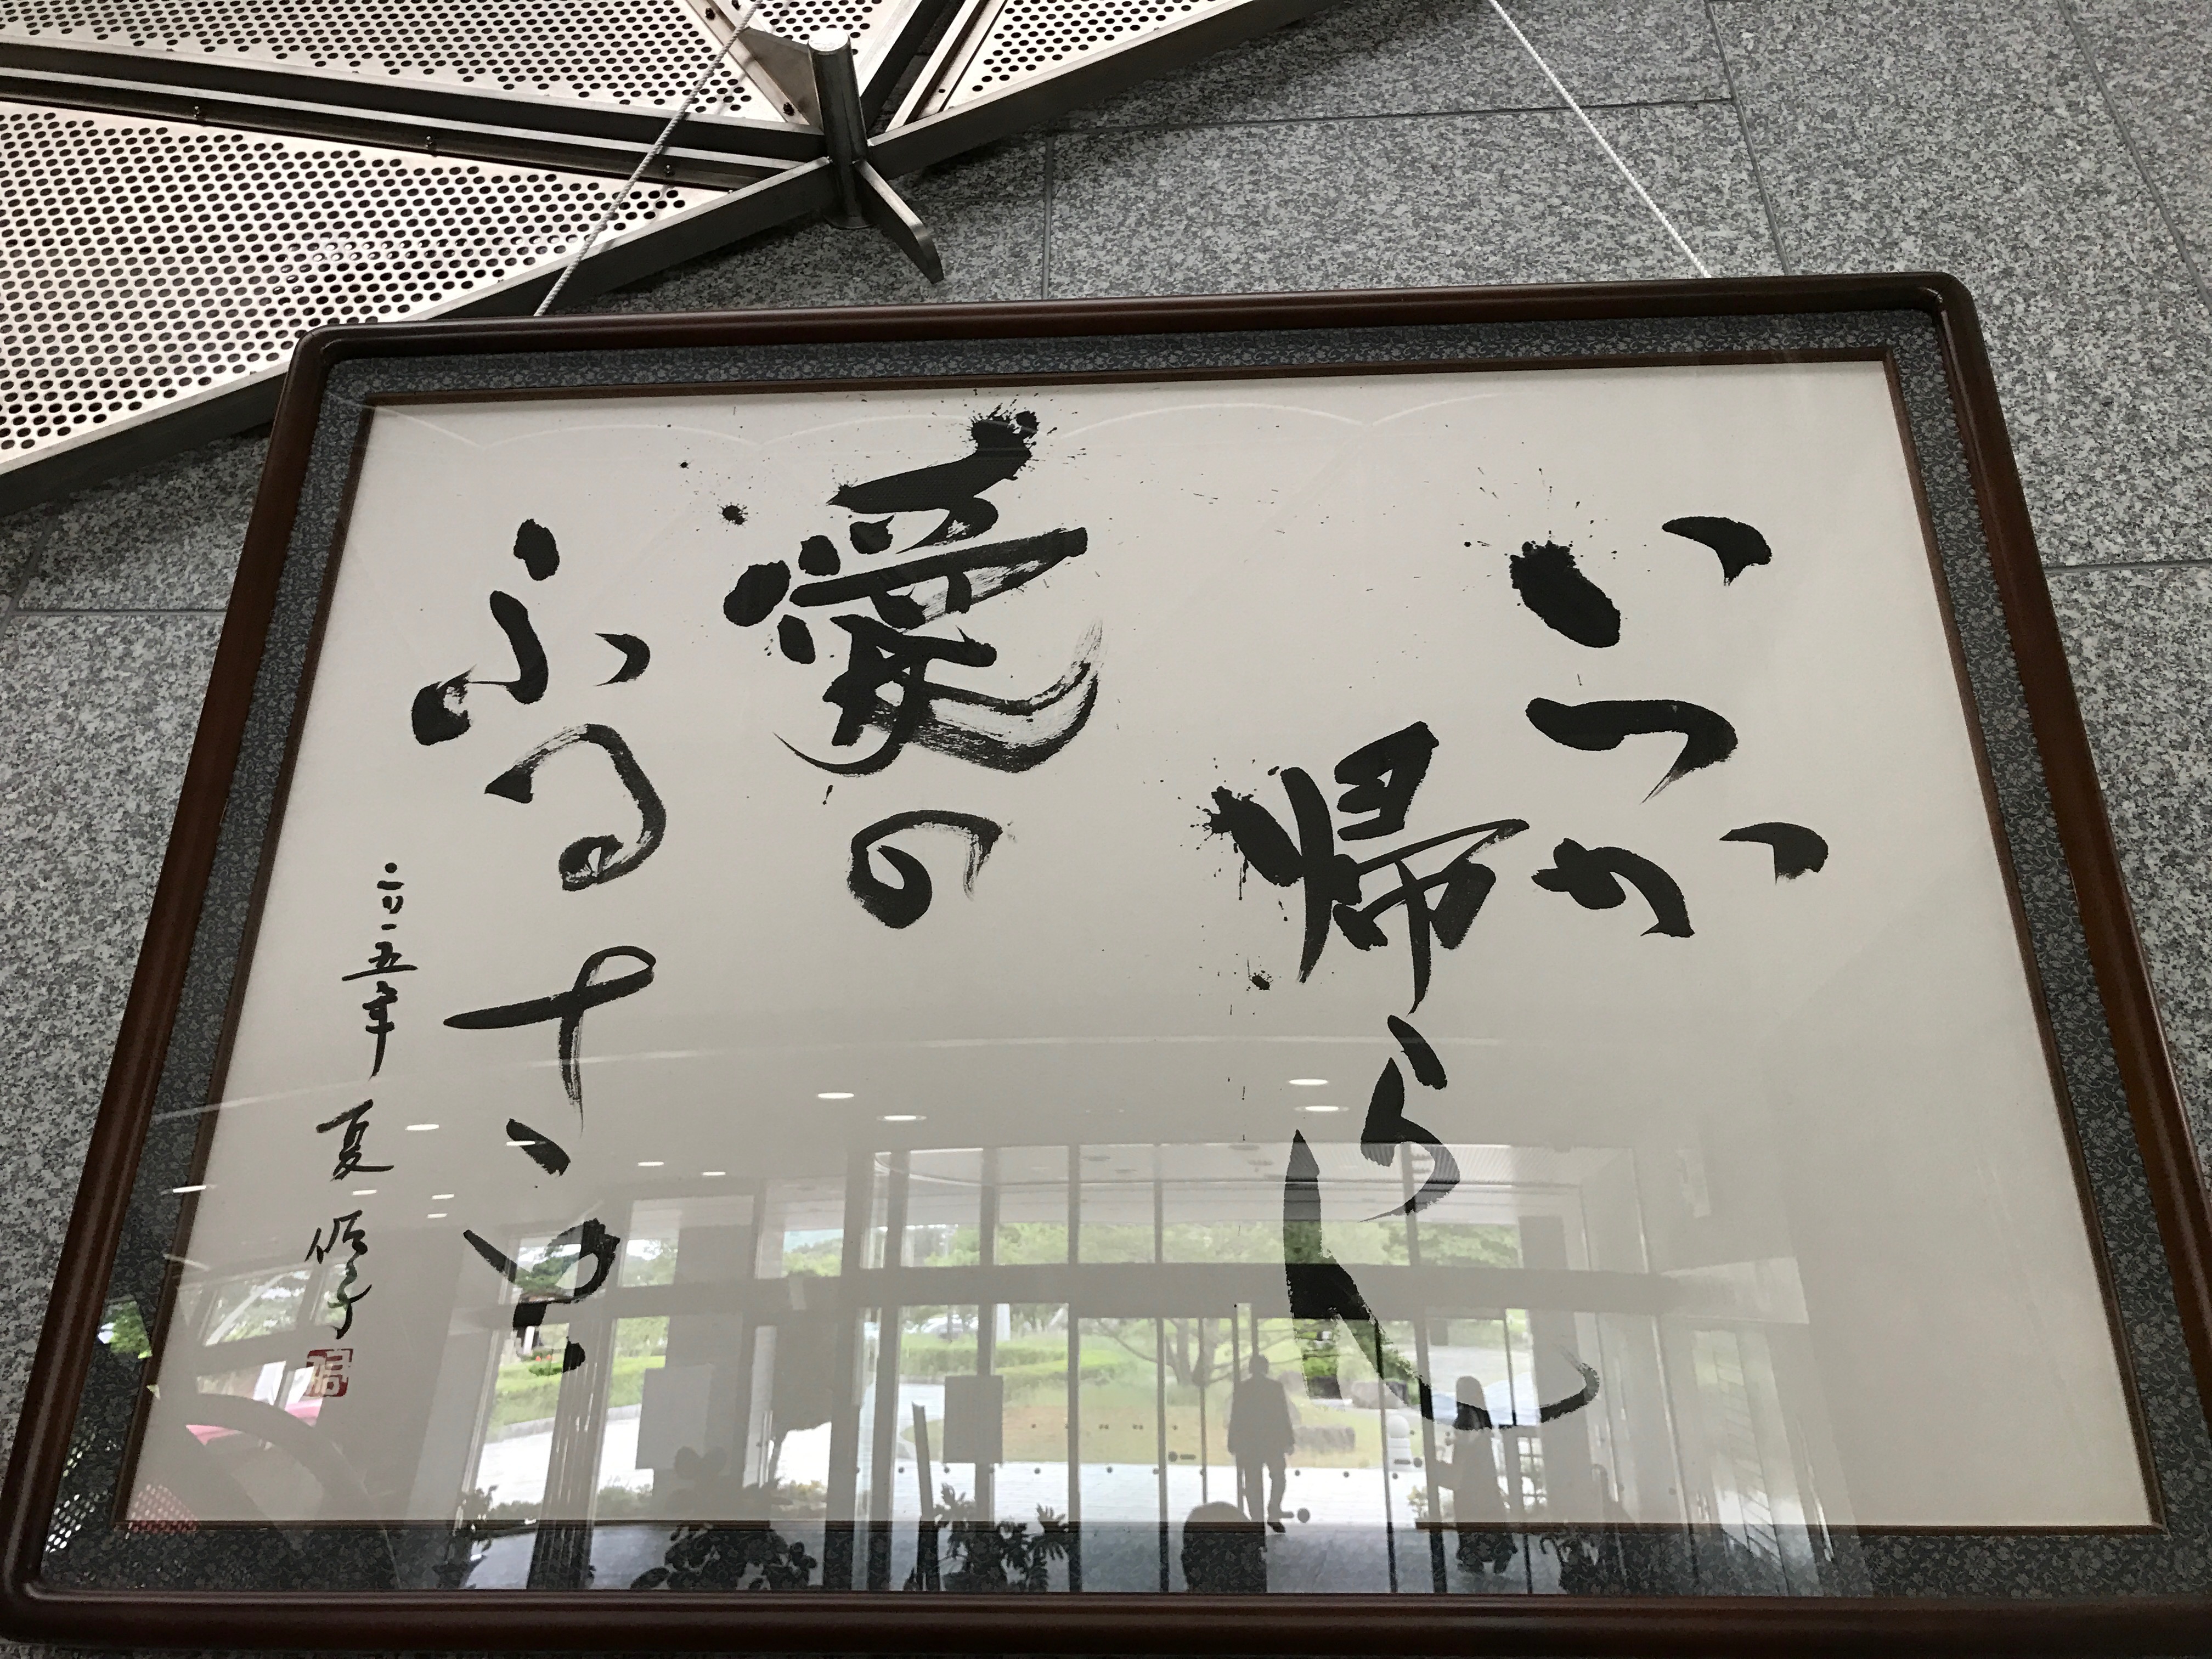 いつか
帰らん
愛の
ふるさと
二〇一五年 夏 侑子